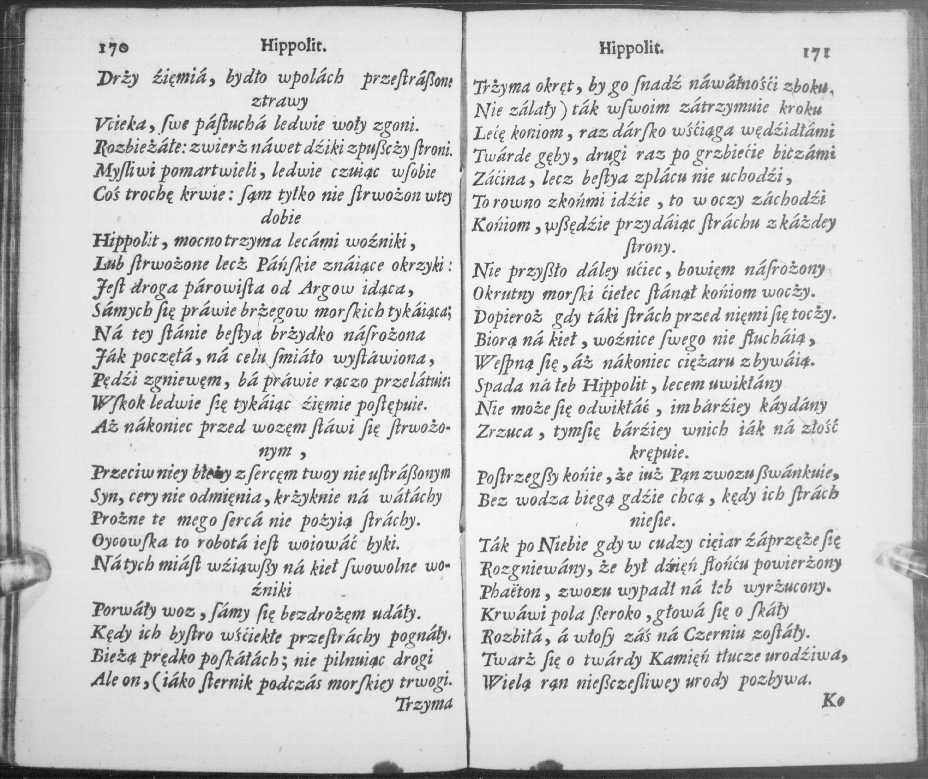 170 Hippolit.
Drży źięmiá, bydło wpolách przeſtráßone
ztrawy
Vcieka, ſwe páſtuchá ledwie woły zgoni.
Rozbieżáłe: zwierż náwet dźiki zpußcży ſtroni.
Myſliwi pomartwieli, ledwie czuiąc wſobie
Coś trochę krwie: ſąm tylko nie ſtrwożon wtey
dobie
Hippolit, mocno trzyma lecámi woźniki,
Lub ſtrwożone lecż Páńſkie znáiące okrzyki:
Jeſt droga párowiſta od Argow idąca,
Sámych ſię práwie brżegow morſkich tykáiąca;
Ná tey ſtánie beſtya brżydko náſrożona
Ják poczęłá, ná celu ſmiáło wyſtáwiona,
Pędźi zgniewęm, bá práwie rączo przelátuie;
Wſkok ledwie ſię tykáiąc źięmie poſtępuie.
Aż nákoniec przed wozęm ſtáwi ſię ſtrwożo-
nym,
Przeciw niey błedy z ſercęm twoy nie uſtráßonym
Syn, cery nie odmięnia, krżyknie ná wáłáchy
Prożne te mego ſercá nie pożyią ſtráchy.
Oycowſka to robotá ieſt woiowáć byki.
Nátych miáſt wźiąwſzy ná kieł ſwowolne wo-
źniki
Porwáły woz, ſámy ſię bezdrożęm udáły.
Kędy ich byſtro wśćiekłe przeſtráchy pognáły.
Bieżą prędko poſkáłách; nie pilnuiąc drogi
Ale on, (iáko ſternik podczás morſkiey trwogi.
Trzyma
Hippolit. 171
Trżyma okręt, by go ſnadź náwáłnośći zboku,
Nie zálały) ták wſwoim zátrzymuie kroku
Lećę koniom, raz dárſko wśćiąga wędźidłámi
Twárde gęby, drugi raz po grzbiećie bitzámi
Záćina, lecz beſtya zplácu nie uchodźi,
To rowno zkońmi idźie, to w oczy záchodźi
Końiom, wßędźie przydáiąc ſtráchu z káżdey
ſtrony.
Nie przyßło dáley ućiec, bowięm náſrożony
Okrutny morſki ćiełec ſtánął końiom woczy.
Dopieroż gdy táki ſtrách przed nięmi ſię toczy.
Biorą ná kieł, woźnice ſwego nie ſłucháią,
Weſpną ſię, áż nákoniec ciężaru zbywáią.
Spada ná łeb Hippolit, lecem uwikłány
Nie może ſię odwikłáć, im bárźiey káydány
Zrzuca, tymſię bárźiey wnich iák ná złość
krępuie.
Poſtrzegſzy końie, że iuż Pąn zwozu ßwánkuie,
Bez wodza biegą gdźie chcą, kędy ich ſtrách
nieſie.
Ták po Niebie gdy w cudzy cięiar źáprzęże ſię
Rozgniewány, że był dźięń ſłońcu powierżony
Phaëton, zwozu wypadł ná łeb wyrżucony.
Krwáwi pola ßeroko, głową ſię o ſkáły
Rozbiłá, á włoſy záś ná Czerniu zoſtáły.
Twarż ſię o twárdy Kamięń tłucze urodźiwa,
Wielą rąn nießczeſliwey urody pozbywa.
Ko